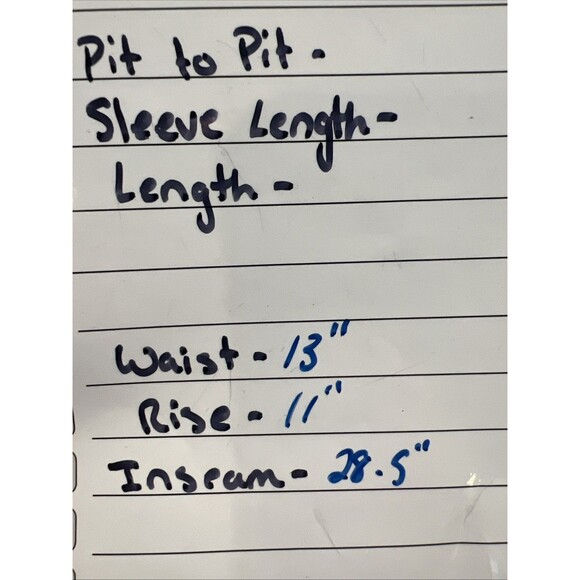 Pit to Pit -
Sleeve Length -
Length -
Waist - 13"
Rise - 11"
Inseam - 28.5"